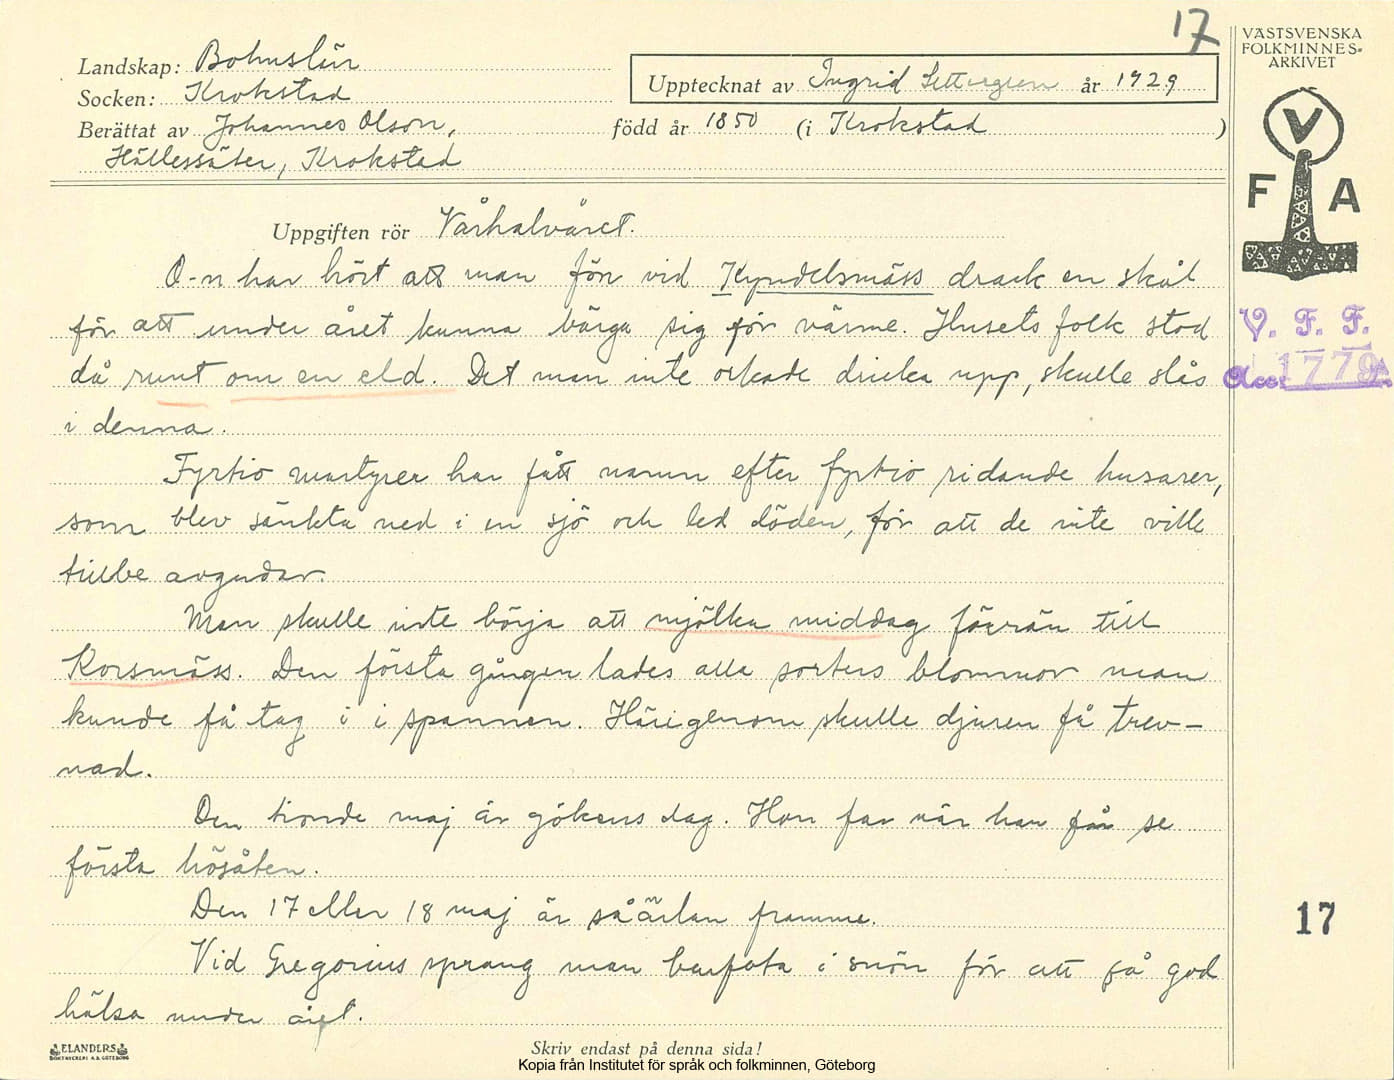 17
VÄSTSVENSKA
FOLKMINNES-
ARKIVET
Landskap: Bohuslän
Socken: Krokstad
Upptecknat av Ingrid år 1929
Berättat av Johannes Olson, född år 1850 (i Krokstad )
Hällessäter, Krokstad
V
F A
Uppgiften rör Vårhalvåret.
O-n har hört att man förr vid Kyndelsmäss drack en skål
för att under året kunna bärga sig för värme. Husets folk stod
då runt om en eld. Det man inte orkade dricka upp, skulle slås
i denna.
V. F. F.
Acc. 1779
Fyrtio martyrer har fått namn efter fyrtio ridande husarer,
som blev sänkta ned i en sjö och led döden, för att de inte ville
tillbe avgudar.
Man skulle inte börja att mjölka middag förrän till
Korsmäss. Den första gången lades alla sorters blommor man
kunde få tag i i spannen. Härigenom skulle djuren få trev-
nad.
Den tionde maj är gökens dag. Han far när han får se
första hösåten.
Den 17 eller 18 maj är såärlan framme.
17
Vid Gregorius sprang man barfota i snön för att få god
hälsa under året.
ELANDERS
BOKTRYCKERI A.B. GÖTEBORG
Skriv endast på denna sida!
Kopia från Institutet för språk och folkminnen, Göteborg